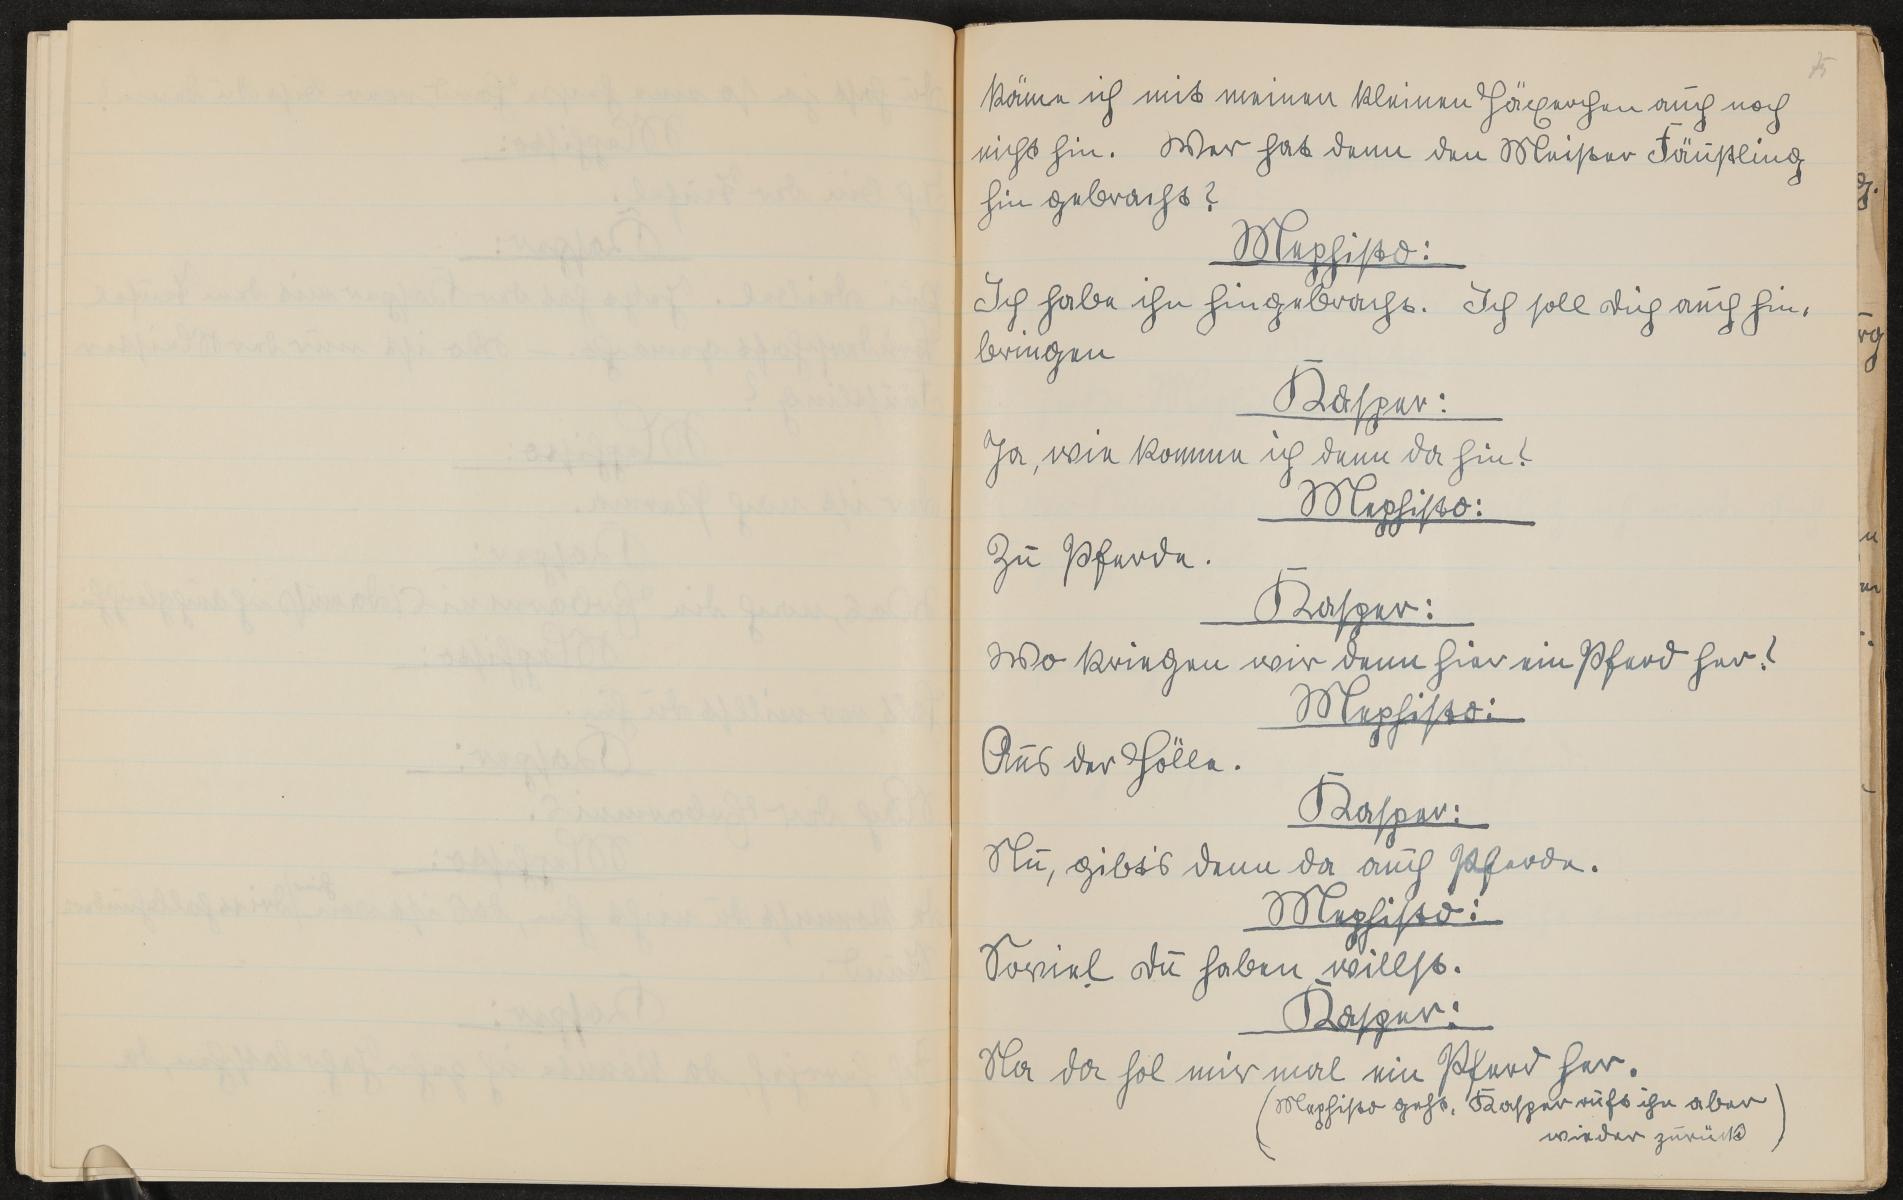 75
käme ich mit meinen kleinen Häxerchen auch noch
nicht hin. Wer hat denn den Meister Fäustling
hin gebracht?
Mephisto:
Ich habe ihn hingebracht. Ich soll dich auch hin-
bringen
Kasper:
Ja, wie komme ich denn da hin?
Mephisto:
Zu Pferde.
Kasper:
Wo kriegen wir denn hier ein Pferd her?
Mephisto:
Aus der Hölle.
Kasper:
Nu, gibt's denn da auch Pferde.
Mephisto:
Soviel du haben willst.
Kasper:
Na da hol mir mal ein Pferd her.
(Mephisto geht, Kasper ruft ihn aber
wieder zurück)